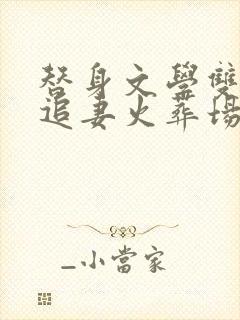 替身文學雙
追妻火葬場
_小當家